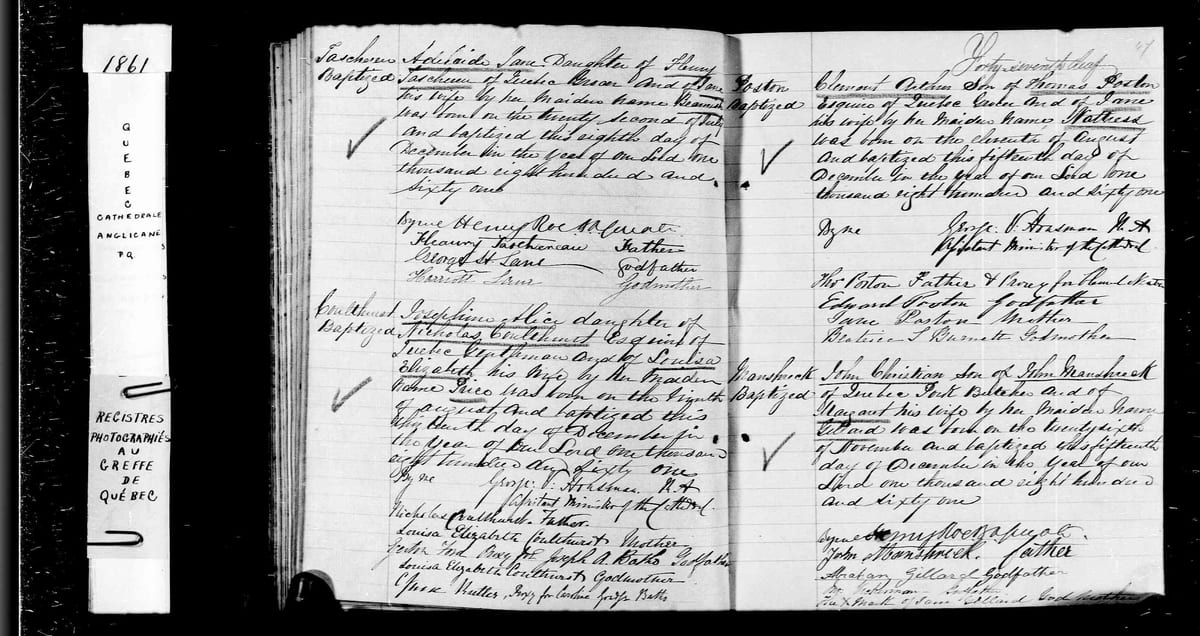 1861
QUEBEC
CATHEDRALE
ANGLICANE
P.Q.
REGISTRES
PHOTOGRAPHIÉS
AU
GREFFE
DE
QUÉBEC
Taschereau
Baptized
Adelaide Jane Daughter of Henry
Taschereau of Quebec Grocer And of Jane
his wife by her Maiden name
was born on the twenty second of July
and baptized this eighth day of
December in the year of our Lord one
thousand eight hundred and
sixty one
Henry Roe
Taschereau Father
George H Lane Godfather
Harriott Godmother
Coulthurst
Baptized
Josephine Alice daughter of
Nicholas Coulthurst Esquire of
Quebec Gentleman And of Louisa
Elizabeth his Wife by her Maiden
Name Price was born on the
of August And baptized this
day of December in
the Year of Our Lord One thousand
eight hundred And Sixty one
George V. Housman M A
Assistant Minister of the Cathedral
Nicholas Coulthurst Father
Louisa Elizabeth Coulthurst Mother
Proxy for Joseph A. Godfather
Louisa Elizabeth Coulthurst Godmother
Proxy for Caroline George
47
Forty seventh leaf
Poston
Baptized
Clement Arthur Son of Thomas Poston
Esquire of Quebec And of Jane
his wife by her Maiden name
was born on the eleventh of August
And baptized this fifteenth day of
December in the year of our Lord one
thousand eight hundred and sixty one
George V. Housman M. A
Assistant Minister of the Cathedral
Thos Poston Father & Proxy for
Edward Poston Godfather
Jane Poston Mother
Beatrice S Burnett Godmother
Mansbreck
Baptized
John Christian Son of John Mansbreck
of Quebec Pork Butcher And of
Margaret his wife by her Maiden Name
Gillard was born on the twenty sixth
of November and baptized this fifteenth
day of December in the Year of our
Lord one thousand eight hundred
and sixty one
Henry Roe
John Mansbreck. Father
Abraham Gillard Godfather
mark of Jane Gillard Godmother